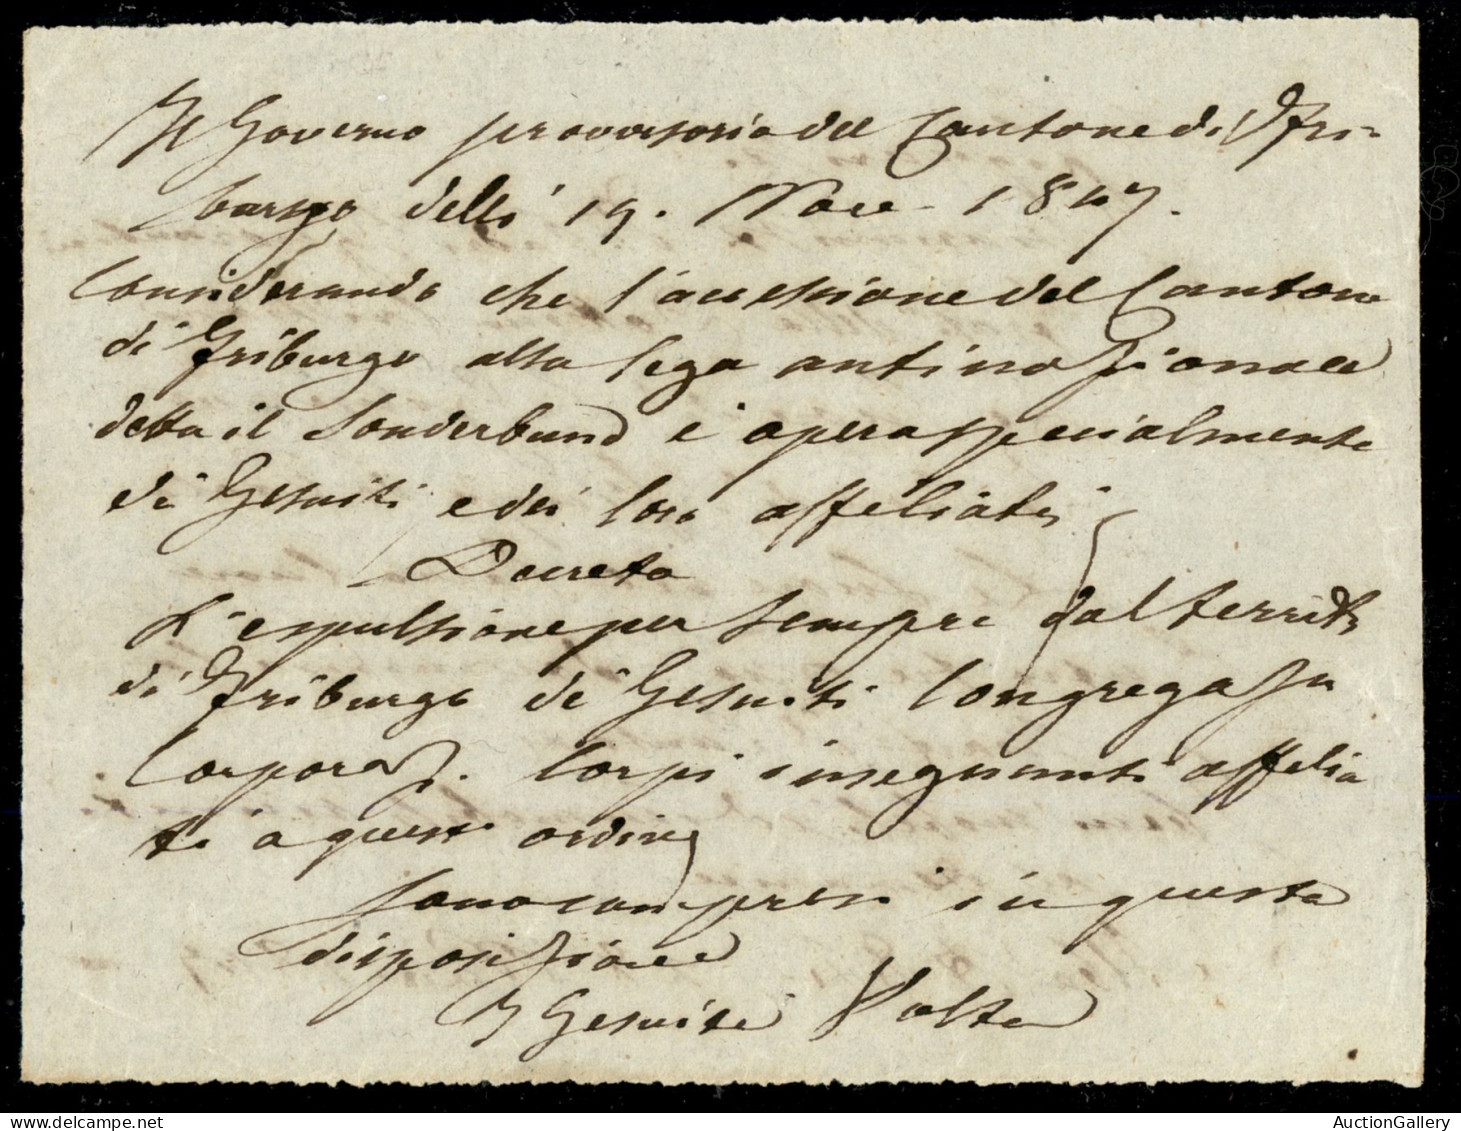 Il Governo provvisorio del Cantone di Fri-
burgo delli 19. Nove 1847.
Considerando che l'accessione del Cantone
di Friburgo alla lega antinazionale
detta il Sonderbund è opera specialmente
di Gesuiti e dei loro affeliati
Decreta
L'espulsione per sempre dal territo
di Friburgo di Gesuiti Congregazn
Corporaz. Corpi insegnanti affelia
ti a questi ordini
Sono compresi in questa
disposizione
I Gesuiti Volta
AuctionGallery